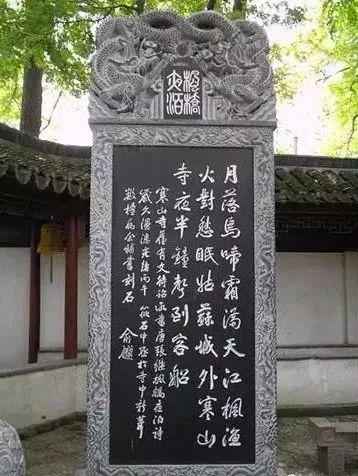 楓橋
夜泊
月落烏啼霜滿天江楓漁
火對愁眠姑蘇城外寒山
寺夜半鐘聲到客船
寒山寺舊有文待詔所書唐張繼楓橋夜泊詩
歲久漫漶光緒丙午筱石中丞於寺中新葺
數楹屬余補書刻石
俞樾